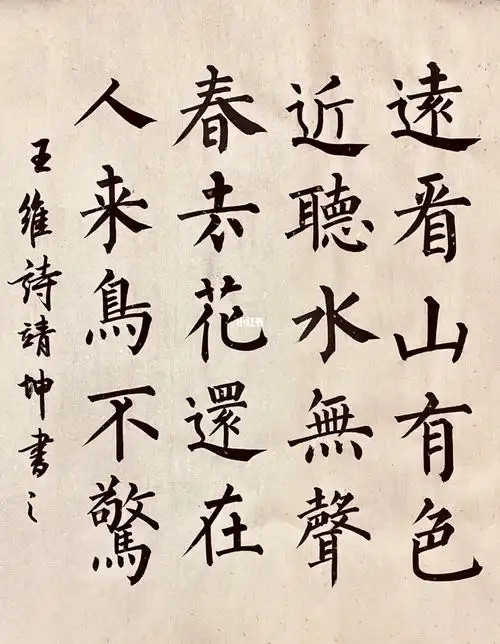 遠看山有色
近聽水無聲
春去花還在
人来鳥不驚
王維詩靖坤書之
小红书